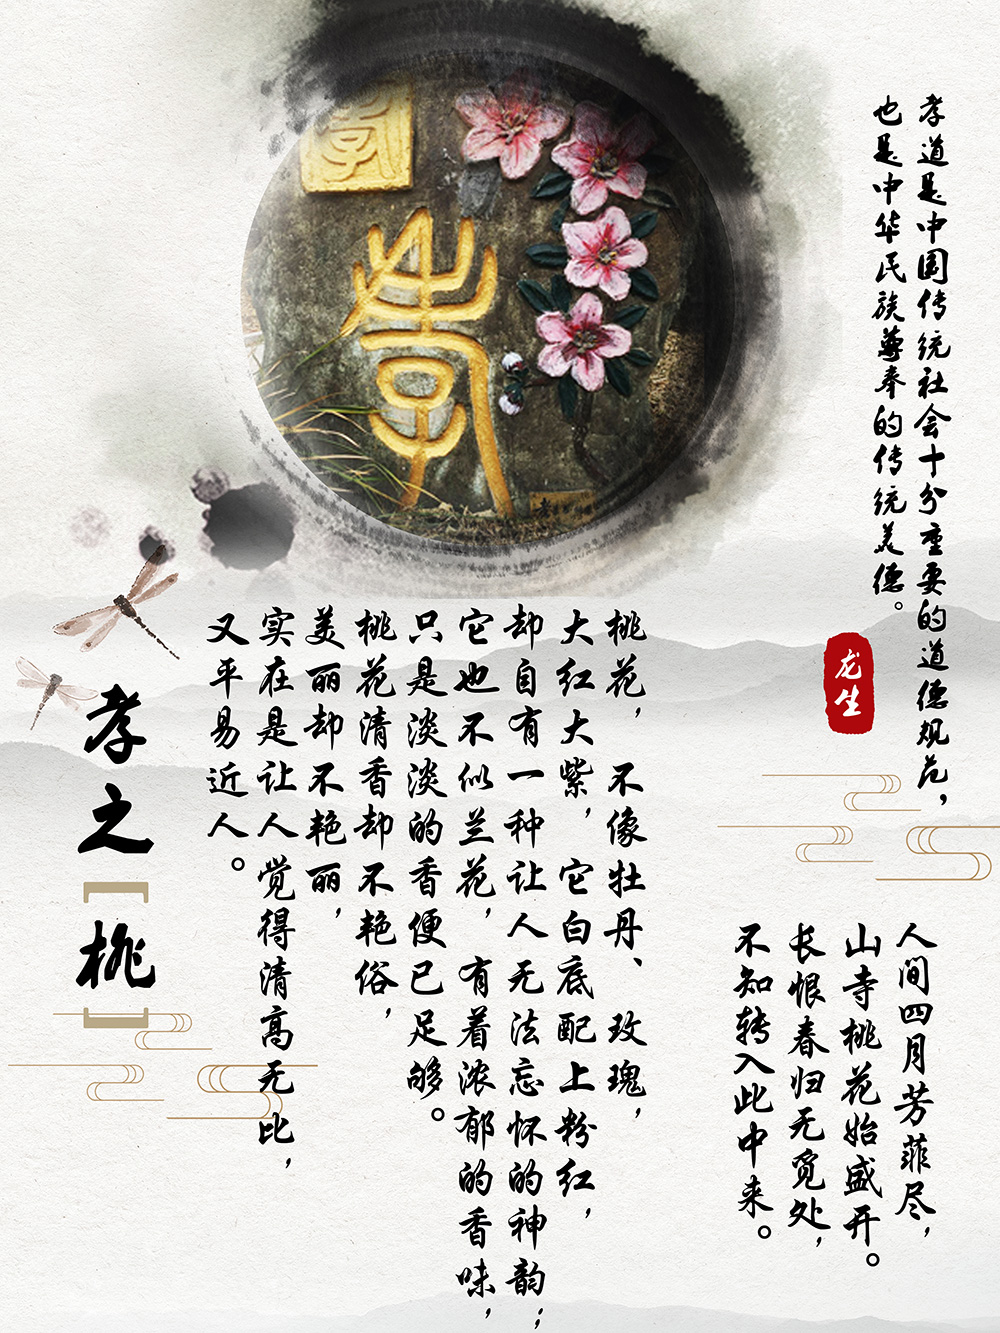 孝道是中国传统社会十分重要的道德规范，
也是中华民族尊奉的传统美德。
龙生
孝
孝
人间四月芳菲尽，
山寺桃花始盛开。
长恨春归无觅处，
不知转入此中来。
桃花，不像牡丹、玫瑰，
大红大紫，它白底配上粉红，
却自有一种让人无法忘怀的神韵；
它也不似兰花，有着浓郁的香味，
只是淡淡的香便已足够。
桃花清香却不艳俗，
美丽却不艳丽，
实在是让人觉得清高无比，
又平易近人。
孝之[桃]